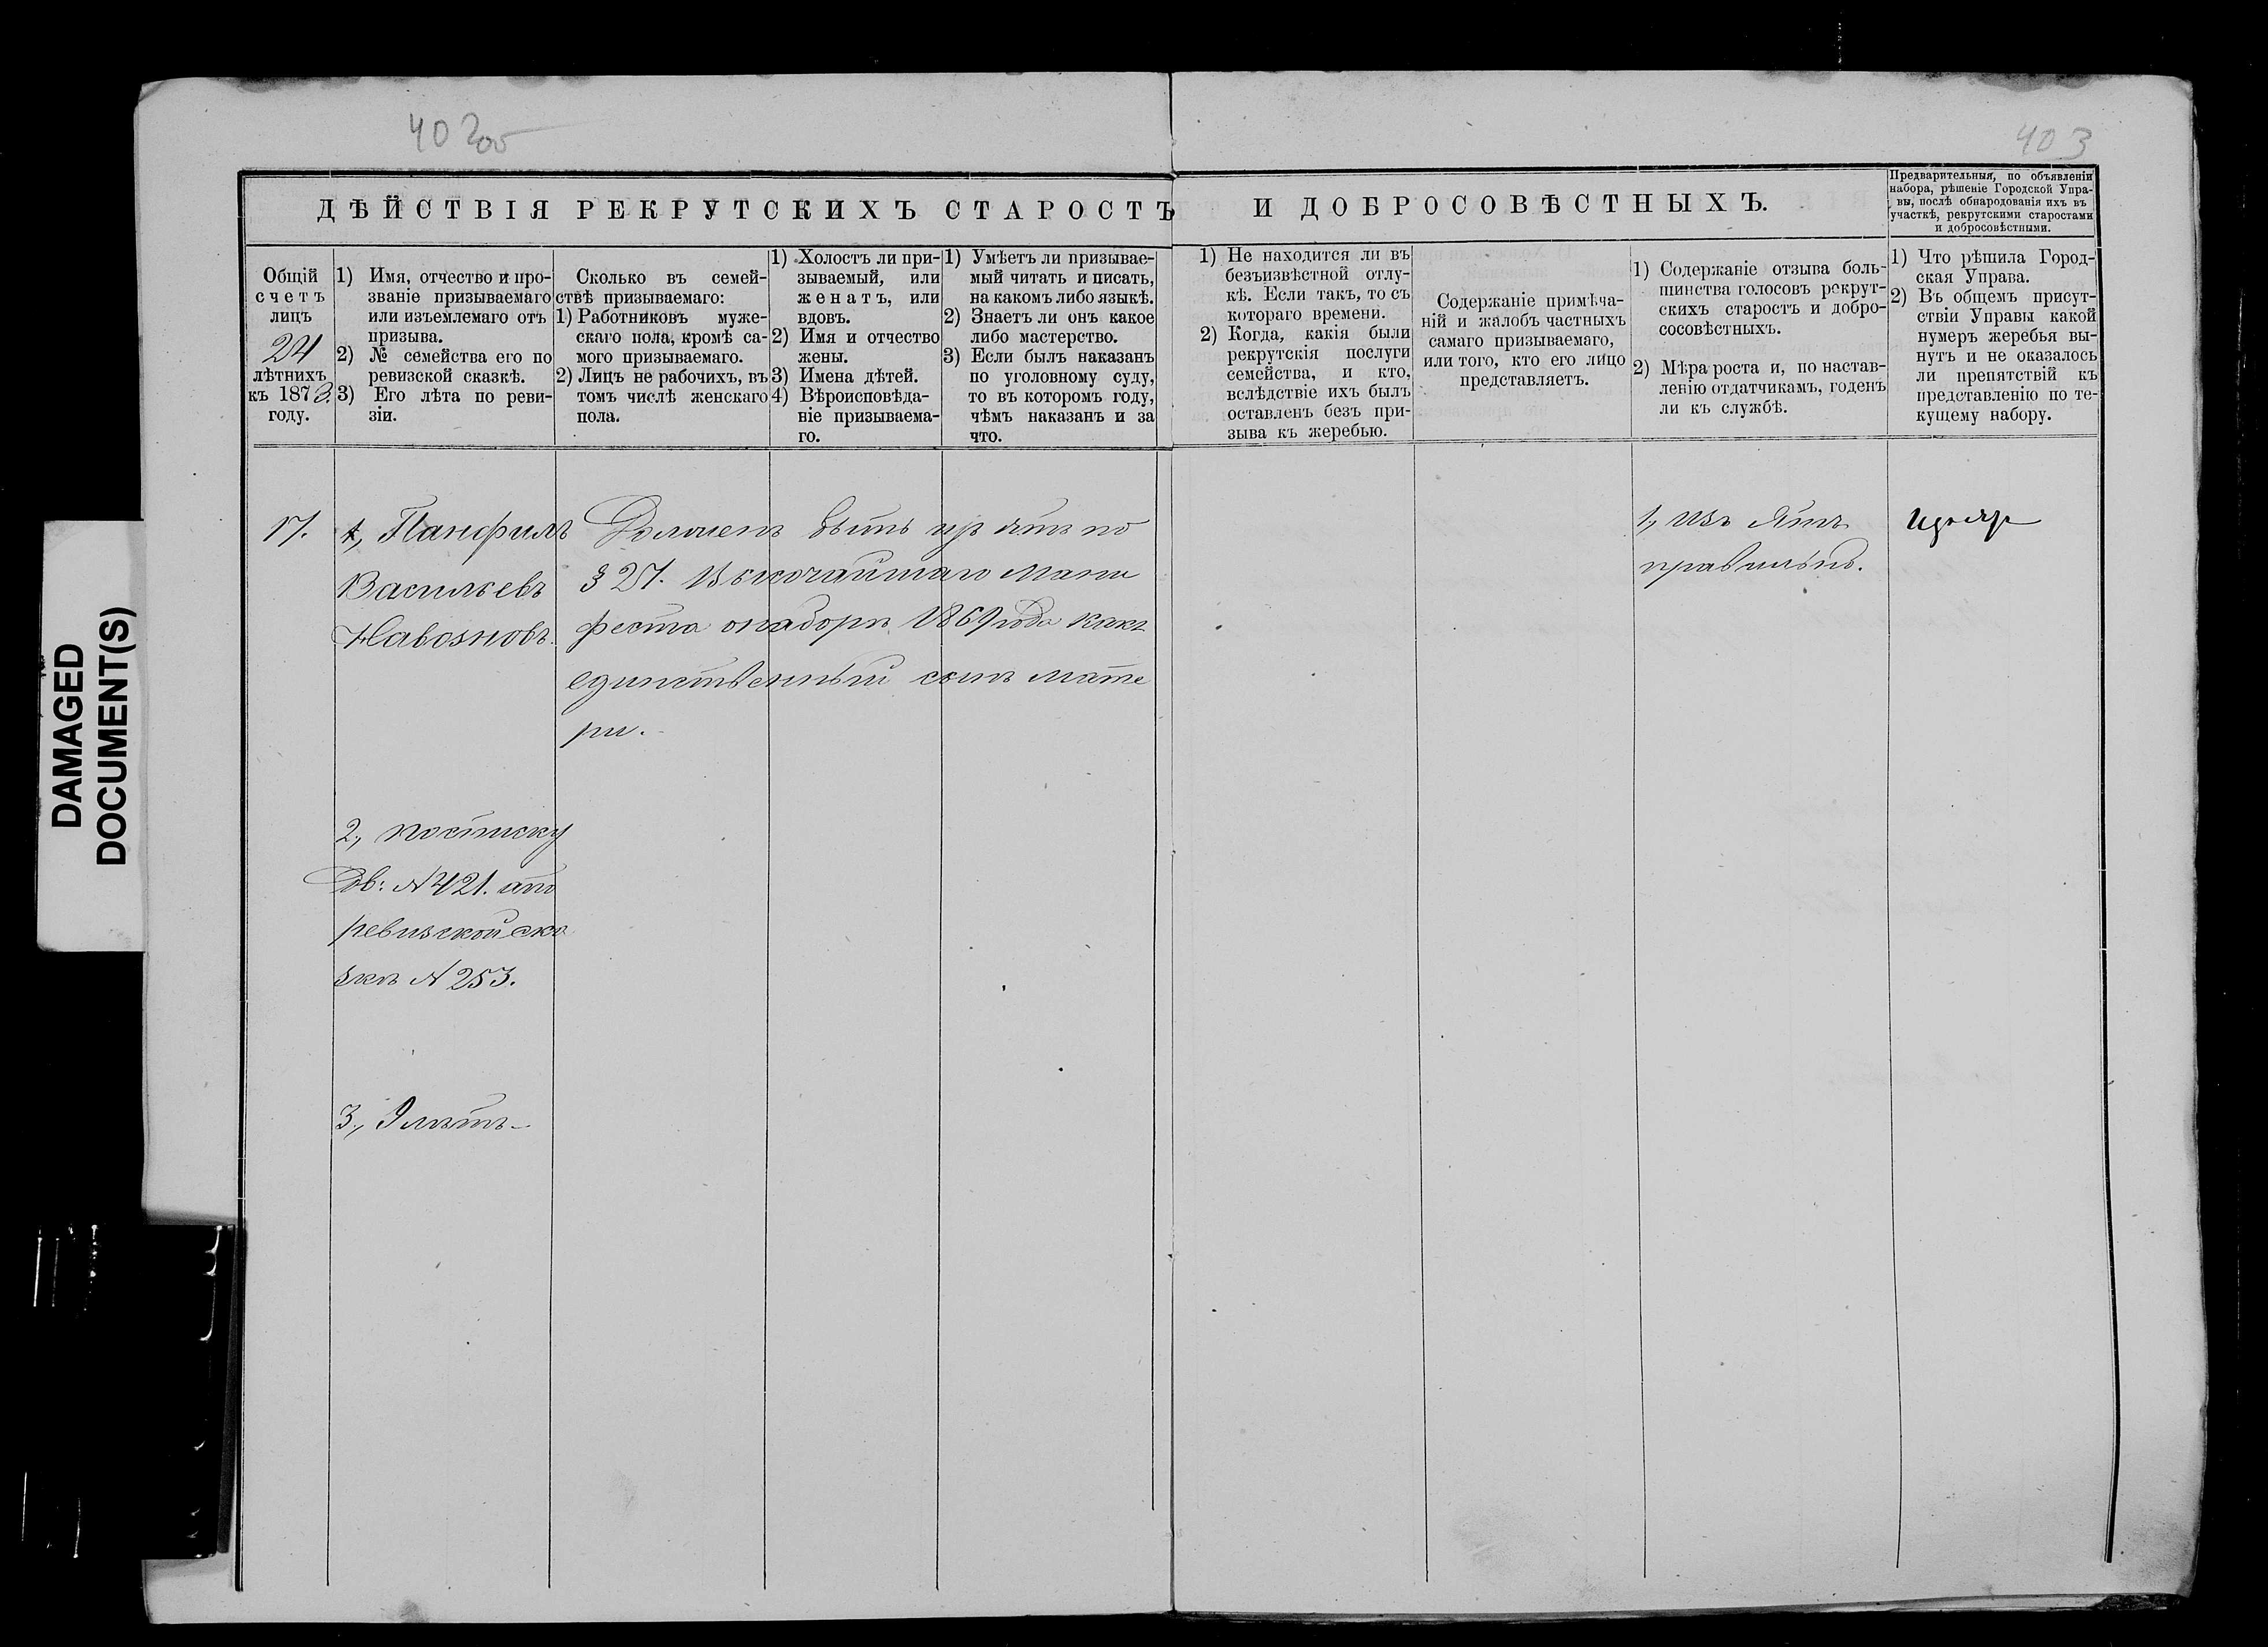 40 2об
403
ДѢЙСТВІЯ РЕКРУТСКИХЪ СТАРОСТЪ И ДОБРОСОВѢСТНЫХЪ.
Предварительныя, по объявленіи
набора, рѣшеніе Городской Упра-
вы, послѣ обнародованія ихъ въ
участкѣ, рекрутскими старостами
и добросовѣстными.
Общій
счетъ
лицъ
24
лѣтнихъ
къ 1873.
году.
1) Имя, отчество и про-
званіе призываемаго
или изъемлемаго отъ
призыва.
2) № семейства его по
ревизской сказкѣ.
3) Его лѣта по реви-
зіи.
Сколько въ семей-
ствѣ призываемаго:
1) Работниковъ муже-
скаго пола, кромѣ са-
мого призываемаго.
2) Лицъ не рабочихъ, въ
томъ числѣ женскаго
пола.
1) Холостъ ли при-
зываемый, или
женатъ, или
вдовъ.
2) Имя и отчество
жены.
3) Имена дѣтей.
4) Вѣроисповѣда-
ніе призываема-
го.
1) Умѣетъ ли призывае-
мый читать и писать,
на какомъ либо языкѣ.
2) Знаетъ ли онъ какое
либо мастерство.
3) Если былъ наказанъ
по уголовному суду,
то въ которомъ году,
чѣмъ наказанъ и за
что.
1) Не находится ли въ
безъизвѣстной отлу-
кѣ. Если такъ, то съ
котораго времени.
2) Когда, какія были
рекрутскія послуги
семейства, и кто,
вслѣдствіе ихъ былъ
оставленъ безъ при-
зыва къ жеребью.
Содержаніе примѣча-
ній и жалобъ частныхъ
самаго призываемаго,
или того, кто его лицо
представляетъ.
1) Содержаніе отзыва боль-
шинства голосовъ рекрут-
скихъ старостъ и добро-
сосовѣстныхъ.
2) Мѣра роста и, по настав-
ленію отдатчикамъ, годенъ
ли къ службѣ.
1) Что рѣшила Город-
ская Управа.
2) Въ общемъ присут-
ствіи Управы какой
нумеръ жеребья вы-
нутъ и не оказалось
ли препятствій къ
представленію по те-
кущему набору.
17.
1, Панфилъ
Васильевъ
Навозновъ.
Долженъ быть изъ ятъ по
§ 27. Высочайшаго Мани
феста о наборѣ 1869 года какъ
единственный сынъ мате
ри.
1, Изъ Ятъ
правильно.
2, по списку
Дов: № 421. а по
ревизской ска
зкѣ № 253.
3, 9 лѣтъ
DAMAGED
DOCUMENT(S)